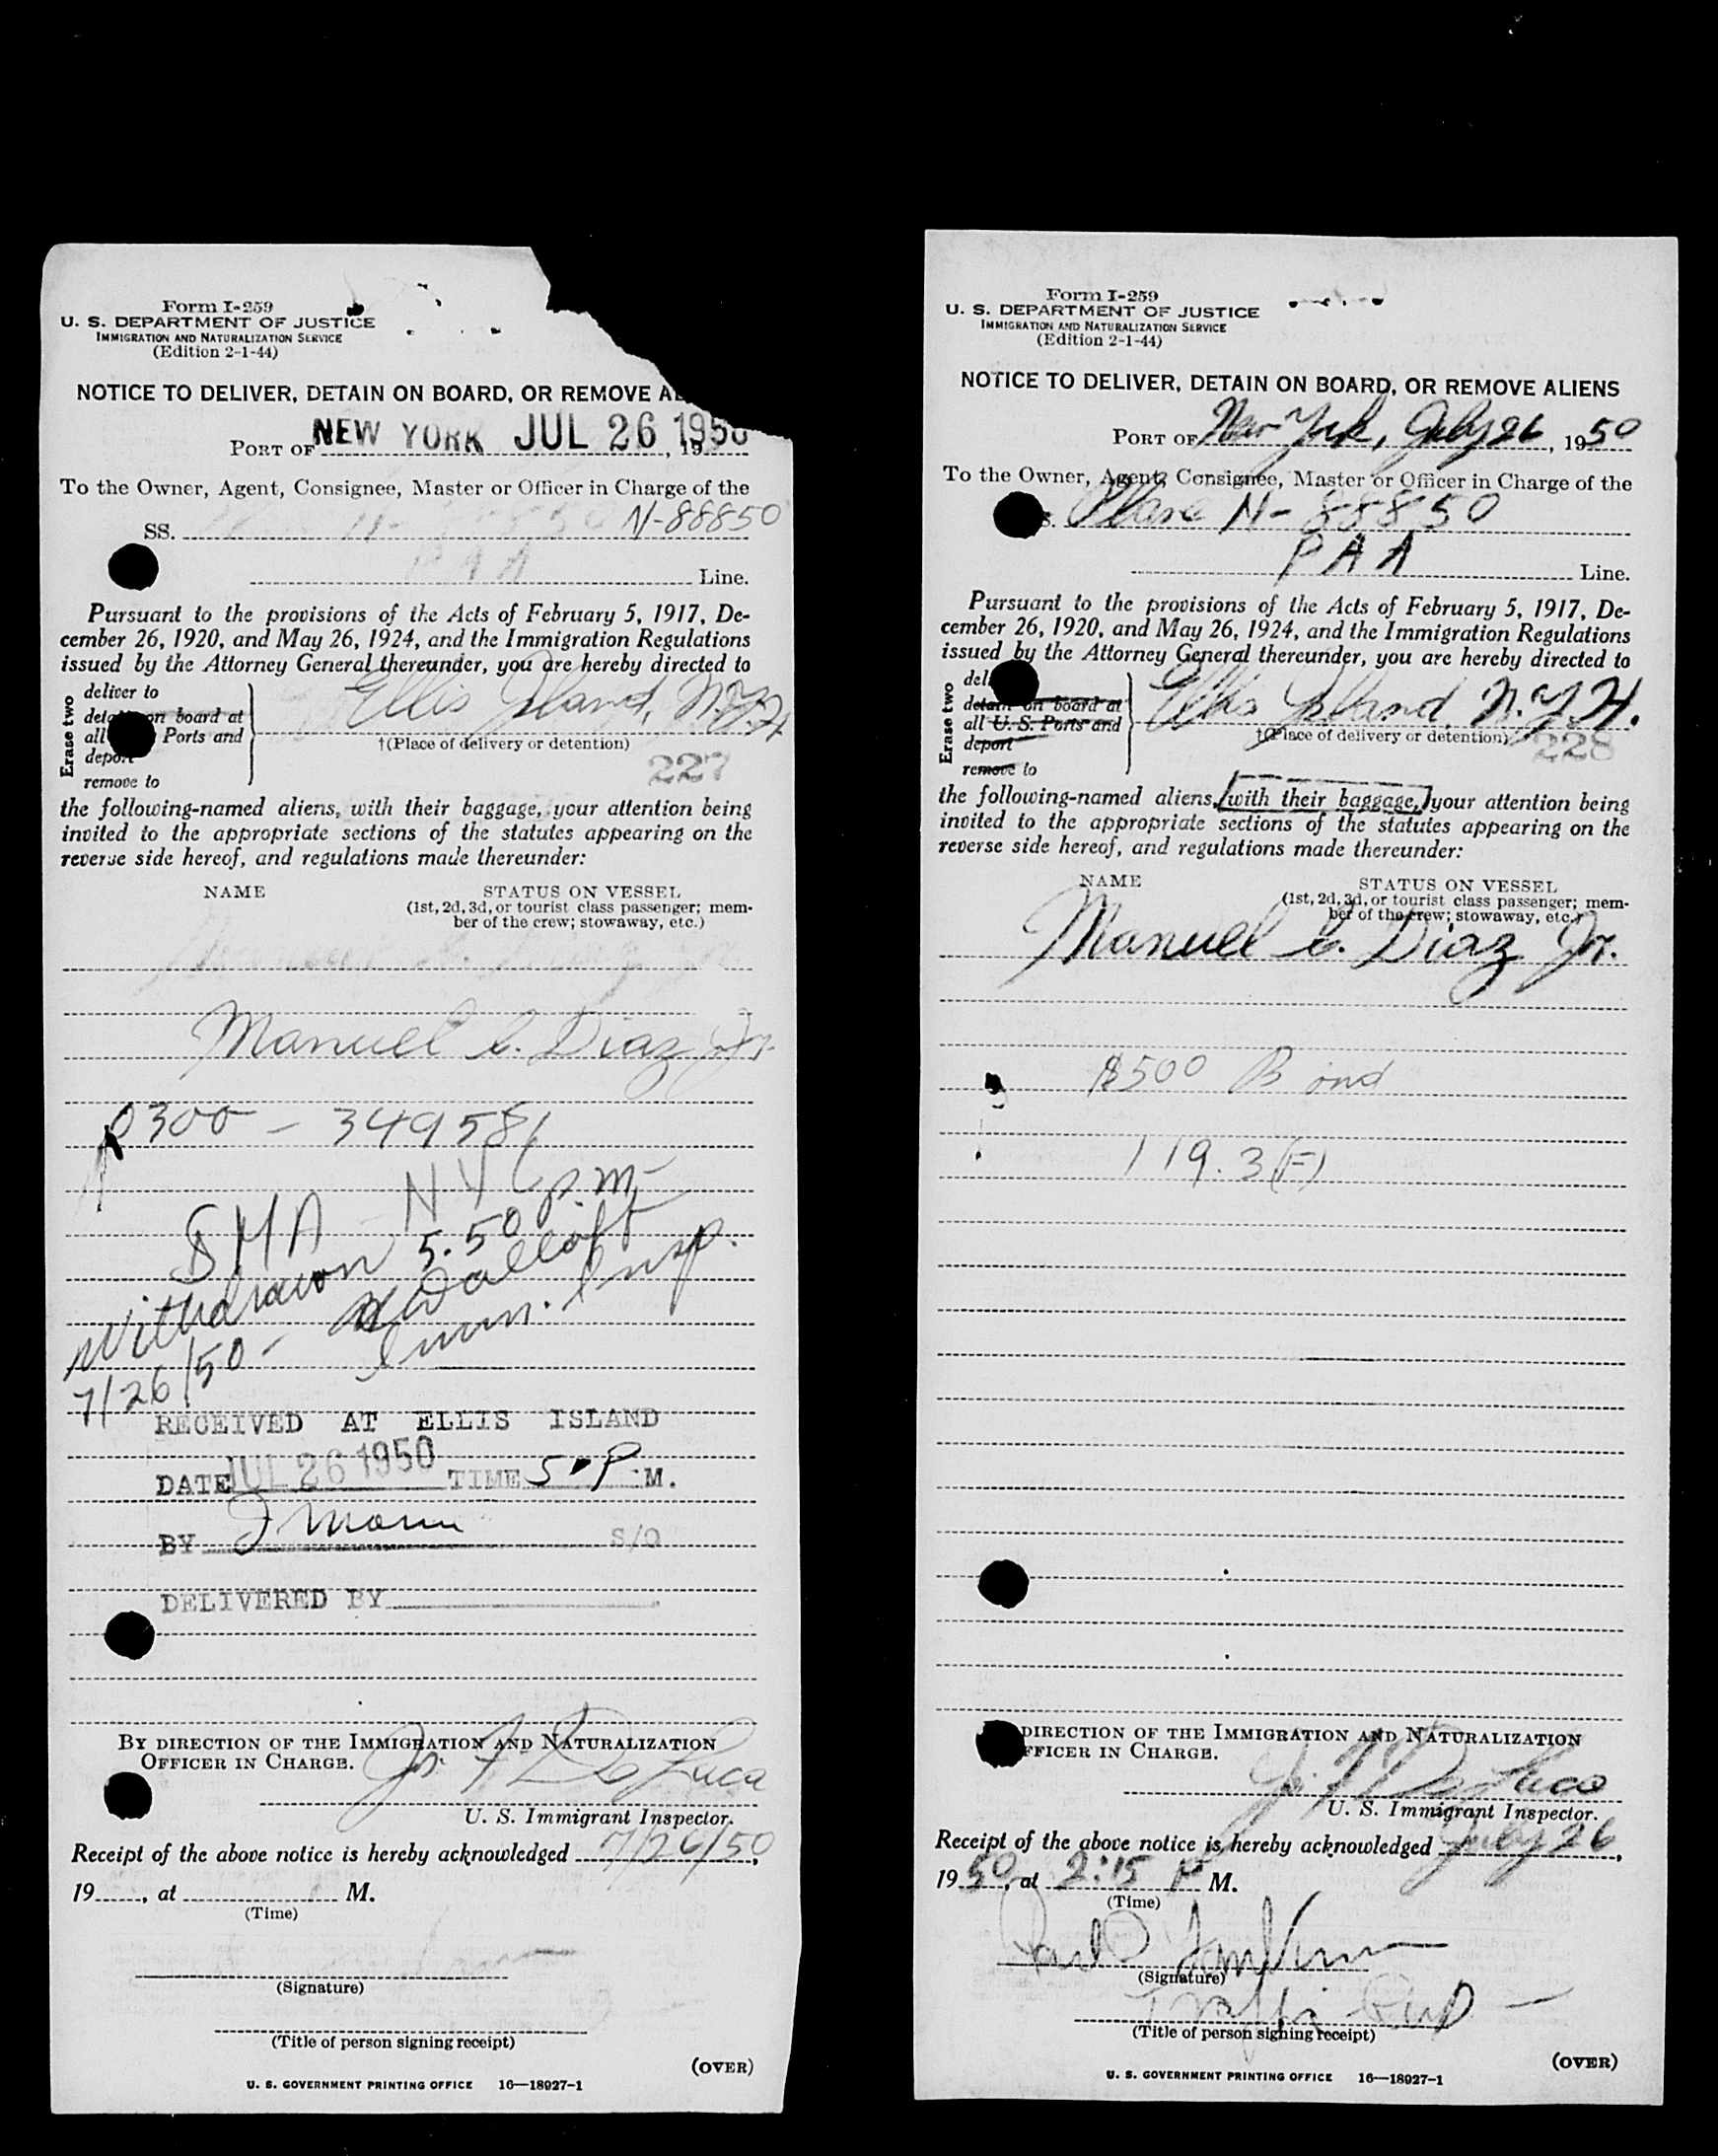 Form I-259
U. S. DEPARTMENT OF JUSTICE
IMMIGRATION AND NATURALIZATION SERVICE
(Edition 2-1-44)
NOTICE TO DELIVER, DETAIN ON BOARD, OR REMOVE AL
PORT OF NEW YORK JUL 26 1950, 19
To the Owner, Agent, Consignee, Master or Officer in Charge of the
SS. N-88850
PAA Line.
Pursuant to the provisions of the Acts of February 5, 1917, De-
cember 26, 1920, and May 26, 1924, and the Immigration Regulations
issued by the Attorney General thereunder, you are hereby directed to
Erase two
deliver to
detain on board at
all Ports and
deport
remove to
Ellis Island, N.Y.H
†(Place of delivery or detention)
227
the following-named aliens, with their baggage, your attention being
invited to the appropriate sections of the statutes appearing on the
reverse side hereof, and regulations made thereunder:
NAME STATUS ON VESSEL
(1st, 2d, 3d, or tourist class passenger; mem-
ber of the crew; stowaway, etc.)
Manuel C. Diaz Jr.
0300 - 349581
NY 6 p.m.
Withdrawn 5.50
7/26/50 - Imm. Insp.
RECEIVED AT ELLIS ISLAND
DATE JUL 26 1950 TIME 5 P M.
BY J Mann S/O
DELIVERED BY
BY DIRECTION OF THE IMMIGRATION AND NATURALIZATION
OFFICER IN CHARGE.
De Luca
U. S. Immigrant Inspector.
Receipt of the above notice is hereby acknowledged 7/26/50,
19, at M.
(Time)
(Signature)
(Title of person signing receipt)
(OVER)
U. S. GOVERNMENT PRINTING OFFICE 16—18927-1
Form I-259
U. S. DEPARTMENT OF JUSTICE
IMMIGRATION AND NATURALIZATION SERVICE
(Edition 2-1-44)
NOTICE TO DELIVER, DETAIN ON BOARD, OR REMOVE ALIENS
PORT OF New York, July 26, 1950
To the Owner, Agent, Consignee, Master or Officer in Charge of the
Plane N-88850
PAA Line.
Pursuant to the provisions of the Acts of February 5, 1917, De-
cember 26, 1920, and May 26, 1924, and the Immigration Regulations
issued by the Attorney General thereunder, you are hereby directed to
Erase two
del
detain on board at
all U. S. Ports and
deport
remove to
Ellis Island, N.Y.H.
†(Place of delivery or detention)
228
the following-named aliens, with their baggage, your attention being
invited to the appropriate sections of the statutes appearing on the
reverse side hereof, and regulations made thereunder:
NAME STATUS ON VESSEL
(1st, 2d, 3d, or tourist class passenger; mem-
ber of the crew; stowaway, etc.)
Manuel C. Diaz Jr.
$500 Bond
119.3(F)
DIRECTION OF THE IMMIGRATION AND NATURALIZATION
FFICER IN CHARGE.
De Luca
U. S. Immigrant Inspector.
Receipt of the above notice is hereby acknowledged July 26,
1950, at 2:15 P M.
(Time)
(Signature)
(Title of person signing receipt)
(OVER)
U. S. GOVERNMENT PRINTING OFFICE 16—18927-1